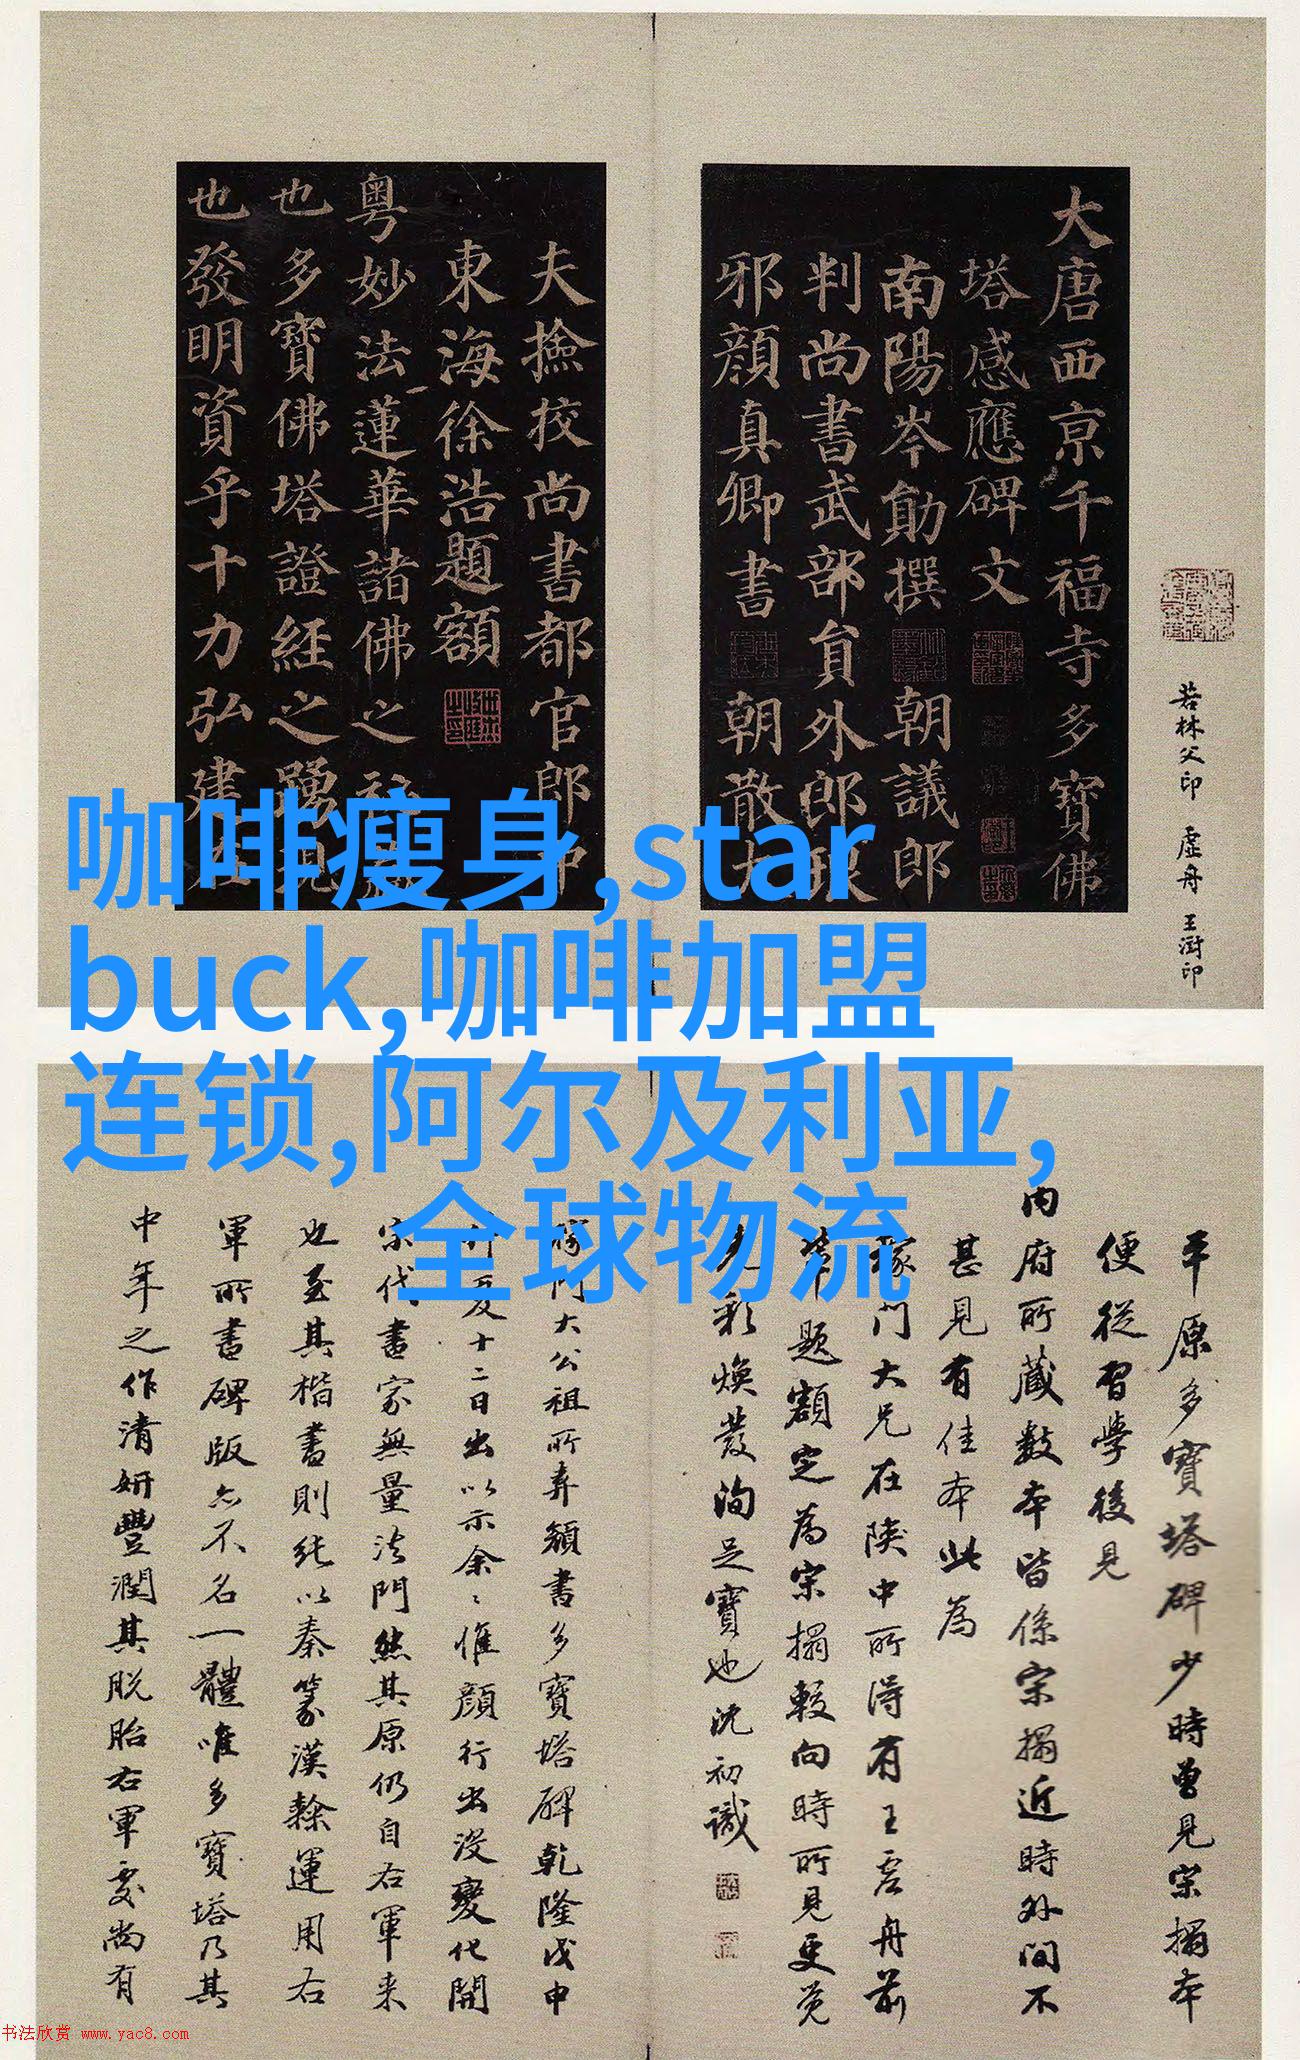 大唐西京千福寺多寶佛
塔感應碑文
南陽岑勛撰 朝議郎
判尚書武部員外郎琅
邪顏真卿書 朝散大
夫撿挍尚書都官郎中
東海徐浩題額
粵妙法蓮華諸佛之秘
也多寶佛塔證經之踴現
也發明資乎十力弘建在
若林父印 虛舟 王澍印
咖啡瘦身,star
buck,咖啡加盟
连锁,阿尔及利亚,
全球物流
平原多寶塔碑少時曾見宋搨本
便從習學後見
內府所藏數本皆係宋搨近時外間不
甚見有佳本此為
稼門大兄在陝中所得有王虛舟前
輩題額定為宋搨較向時所見更覺
光彩煥發洵足寶也沈初識
稼門大公祖所弆顏書多寶塔碑乾隆戊申
夏十二日出以示余余惟顏行出沒變化開
宋代書家無量法門然其原仍自右軍来
也至其楷書則純以秦篆漢隸運用右
軍所書碑版亦不名一體唯多寶塔乃其
中年之作清妍豐潤其脫胎右軍處尚有
书法欣赏 www.yac8.com